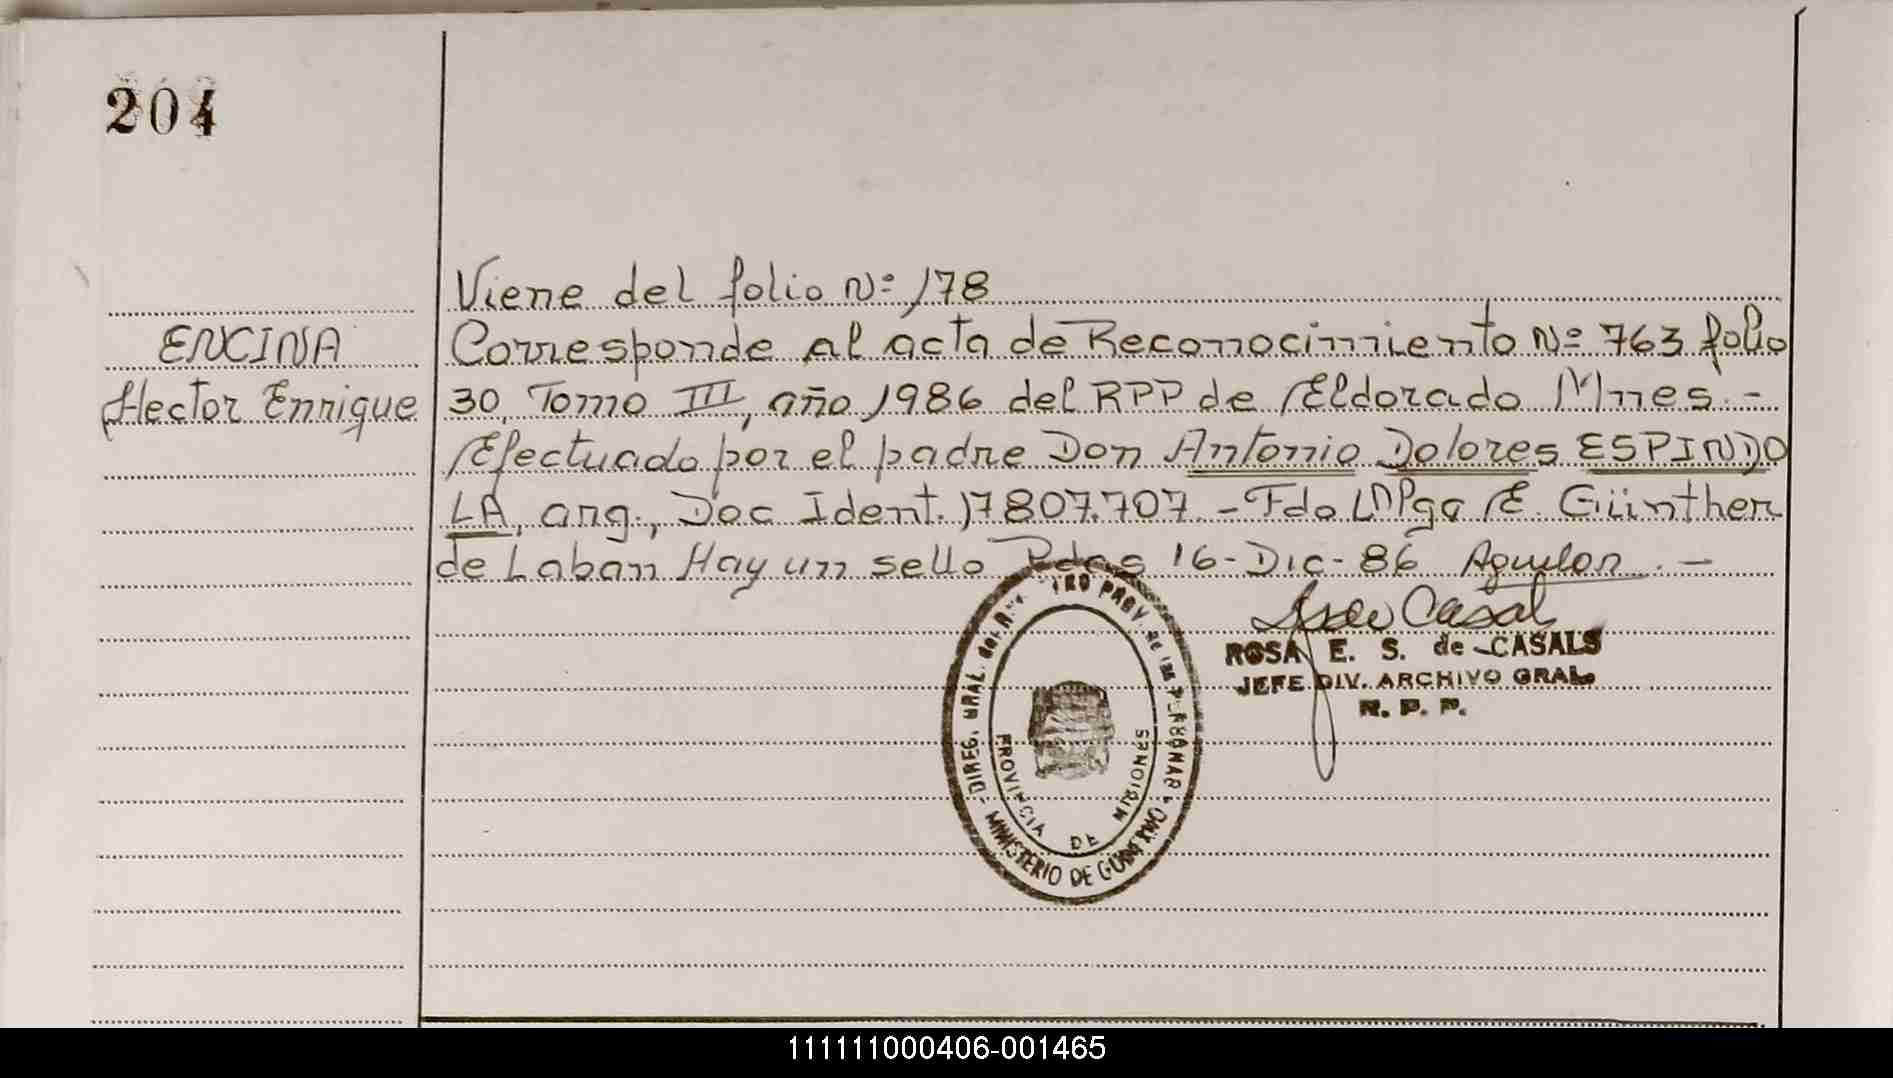 204
Viene del folio Nº 178
ENCINA
Hector Enrique
Corresponde al acta de Reconocimiento Nº 763 folio
30, Tomo III, año 1986 del RPP de Eldorado Mnes. -
Efectuado por el padre Don Antonio Dolores ESPINDO
LA, arg., Doc Ident. 17807.707. - Fdo E. Günther
de Laban Hay un sello Pdas 16-Dic-86
ROSA E. S. de CASALS
JEFE DIV. ARCHIVO GRAL.
R. P. P.
DIREG. GRAL. del PROV. de las PERSONAS
MINISTERIO DE GOBIERNO
PROVINCIA DE MISIONES
111111000406-001465